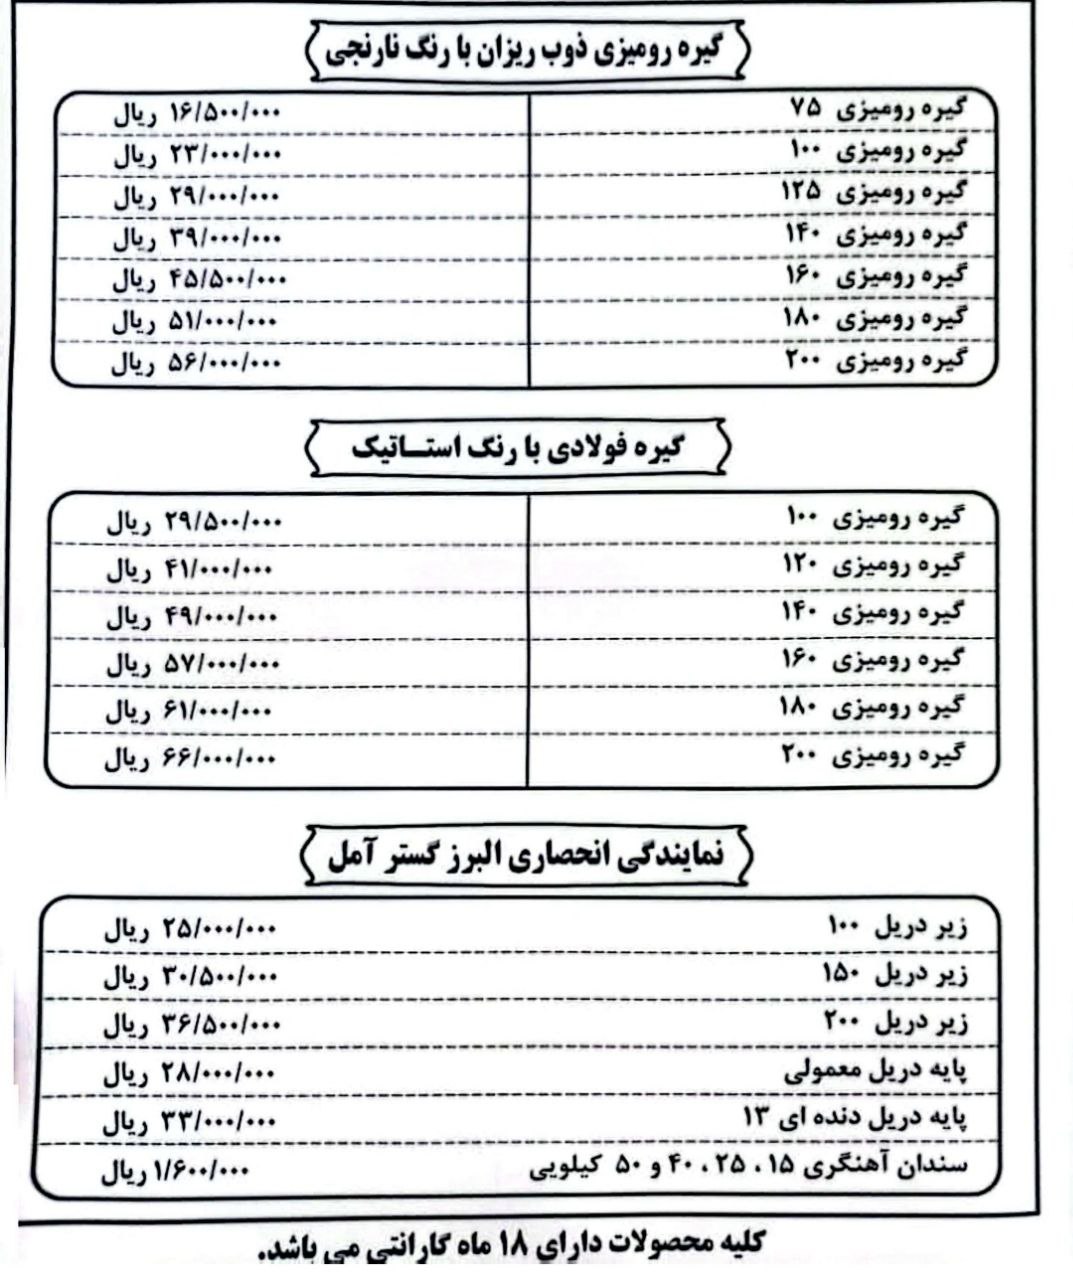 گیره رومیزی ذوب ریزان با رنگ نارنجی
گیره رومیزی ۷۵ ۱۶/۵۰۰/۰۰۰ ریال
گیره رومیزی ۱۰۰ ۲۳/۰۰۰/۰۰۰ ریال
گیره رومیزی ۱۲۵ ۲۹/۰۰۰/۰۰۰ ریال
گیره رومیزی ۱۴۰ ۳۹/۰۰۰/۰۰۰ ریال
گیره رومیزی ۱۶۰ ۴۵/۵۰۰/۰۰۰ ریال
گیره رومیزی ۱۸۰ ۵۱/۰۰۰/۰۰۰ ریال
گیره رومیزی ۲۰۰ ۵۶/۰۰۰/۰۰۰ ریال
گیره فولادی با رنگ استـاتیک
گیره رومیزی ۱۰۰ ۲۹/۵۰۰/۰۰۰ ریال
گیره رومیزی ۱۲۰ ۴۱/۰۰۰/۰۰۰ ریال
گیره رومیزی ۱۴۰ ۴۹/۰۰۰/۰۰۰ ریال
گیره رومیزی ۱۶۰ ۵۷/۰۰۰/۰۰۰ ریال
گیره رومیزی ۱۸۰ ۶۱/۰۰۰/۰۰۰ ریال
گیره رومیزی ۲۰۰ ۶۶/۰۰۰/۰۰۰ ریال
نمایندگی انحصاری البرز گستر آمل
زیر دریل ۱۰۰ ۲۵/۰۰۰/۰۰۰ ریال
زیر دریل ۱۵۰ ۳۰/۵۰۰/۰۰۰ ریال
زیر دریل ۲۰۰ ۳۶/۵۰۰/۰۰۰ ریال
پایه دریل معمولی ۲۸/۰۰۰/۰۰۰ ریال
پایه دریل دنده ای ۱۳ ۳۳/۰۰۰/۰۰۰ ریال
سندان آهنگری ۱۵ ، ۲۵ ، ۴۰ و ۵۰ کیلویی ۱/۶۰۰/۰۰۰ ریال
کلیه محصولات دارای ۱۸ ماه گارانتی می باشد.